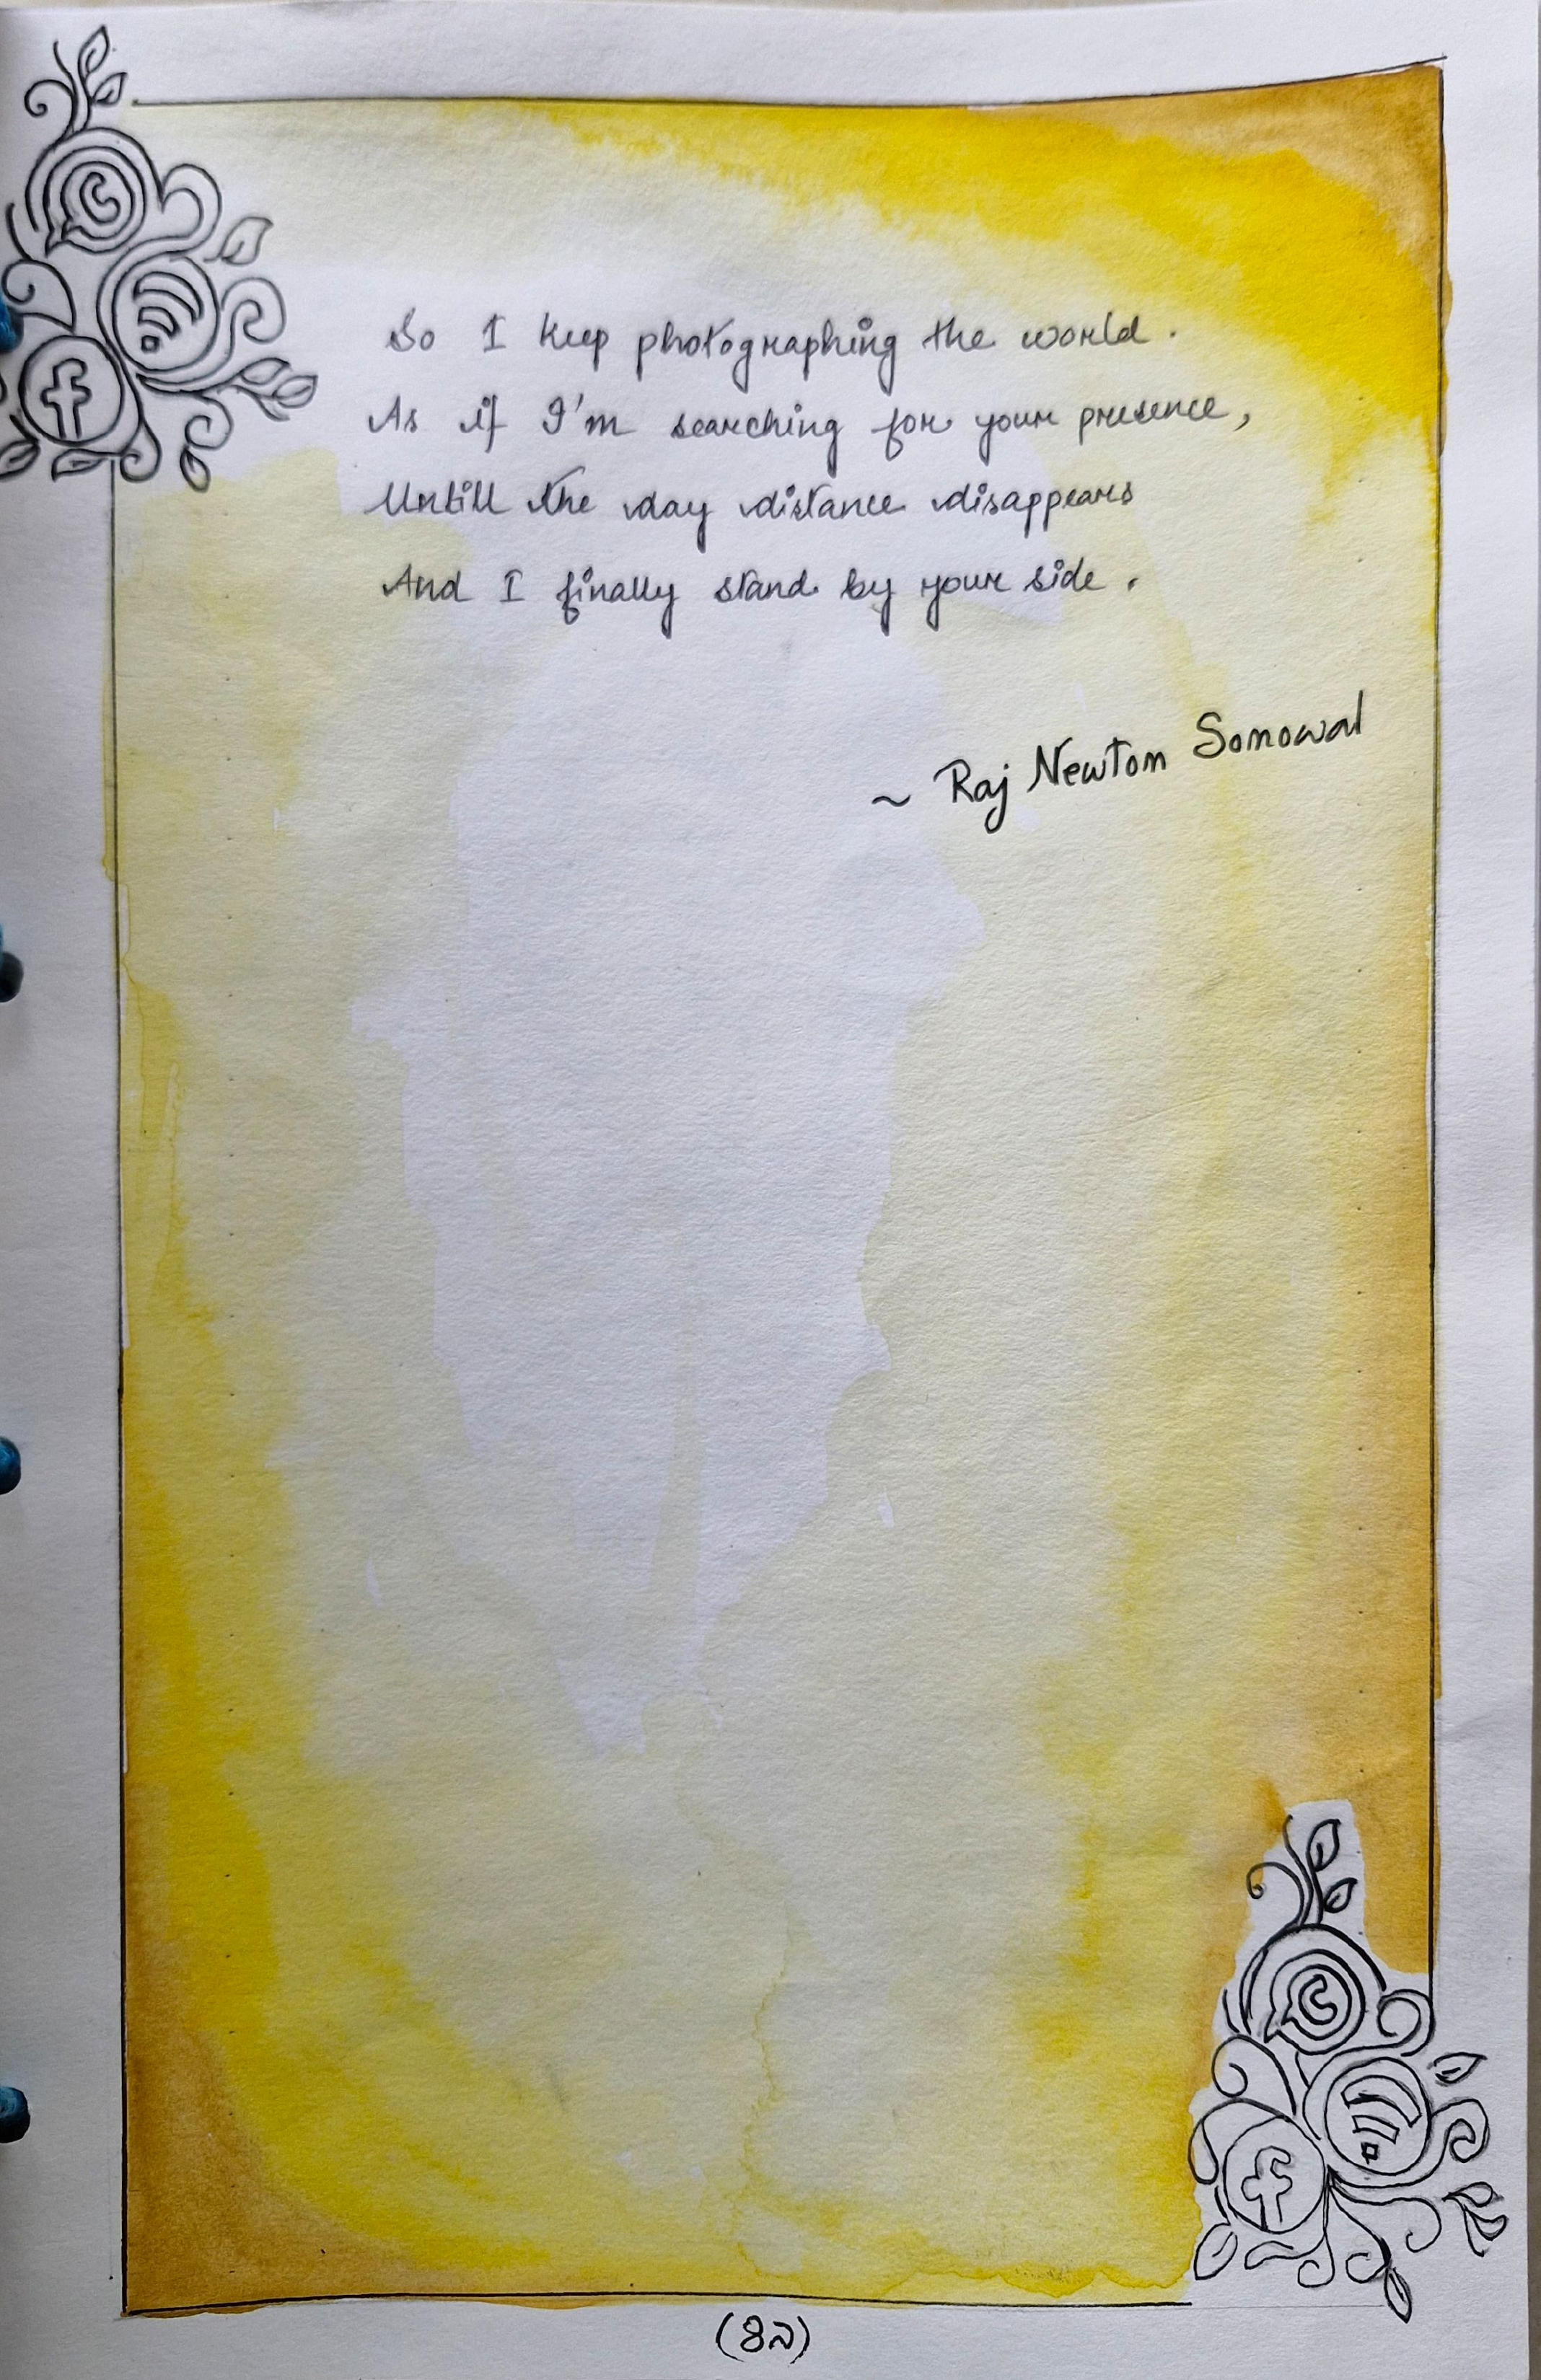 So I keep photographing the world.
As if I'm searching for your presence,
Untill the day distance disappears
And I finally stand by your side.
~ Raj Newton Sonowal